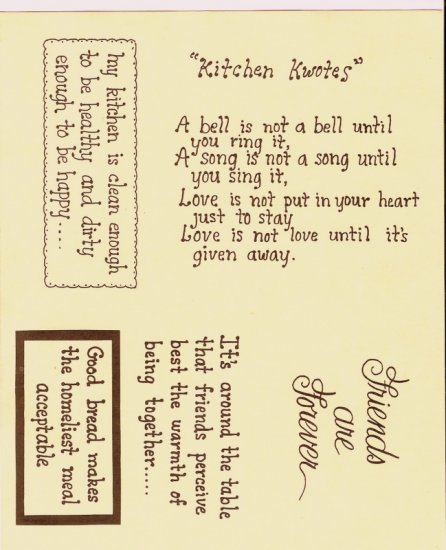 "Kitchen Kwotes"
A bell is not a bell until
you ring it,
A song is not a song until
you sing it,
Love is not put in your heart
just to stay
Love is not love until it's
given away.
my kitchen is clean enough
to be healthy and dirty
enough to be happy....
Good bread makes
the homeliest meal
acceptable
It's around the table
that friends perceive
best the warmth of
being together.....
Friends
are
Forever